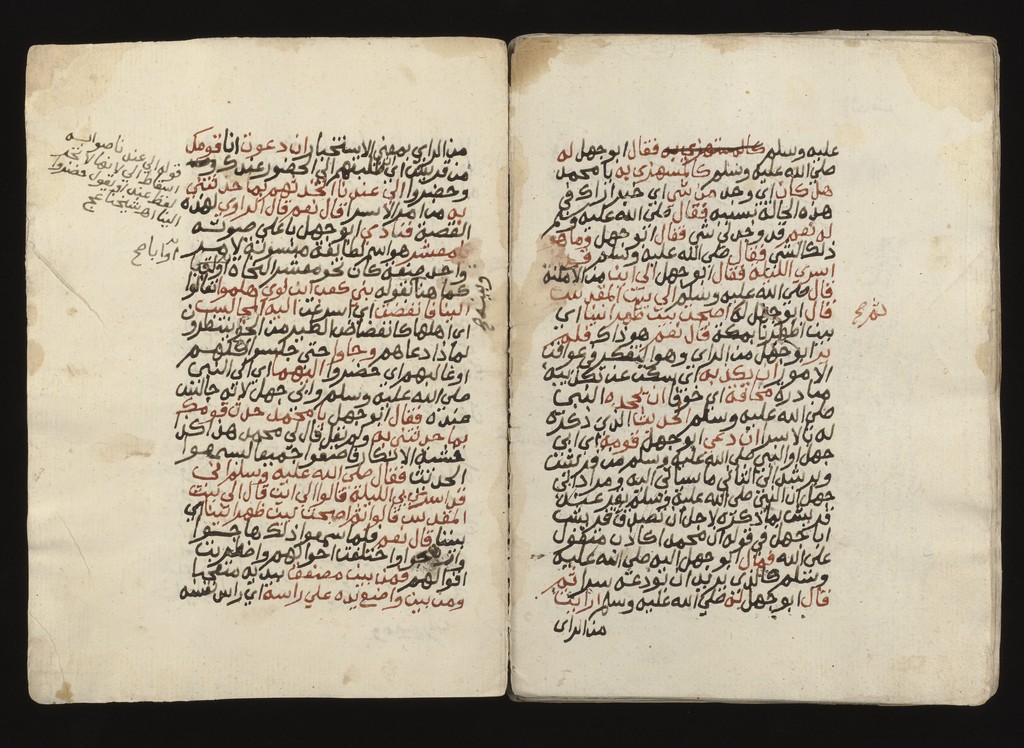 عليه وسلم كالمستهزي به فقال ابو جهل له
صلي الله عليه وسلم كالمستهزي به يا محمد
هل كان اي وجد من شي اي خبر انزاك في
هذه الحالة بسببه فقال صلي الله عليه وسلم
له نعم قد وجد لي شي فقال ابو جهل وما هو
ذلك الشي فقال صلي الله عليه وسلم
اسري الليلة فقال ابو جهل الي اين من الامكنة
قال صلي الله عليه وسلم الي بيت المقدس
قال ابو جهل له اصبحت بين ظهرانينا اي
بين اظهرنا بمكة قال نعم هو ذاك فلم
ير ابو جهل من الراي وهو التفكر في عواقب
الامور ان يكذبه اي سكت عن تكذيبه
مبادرة مخافة اي خوفا ان يجحده النبي
صلي الله عليه وسلم الحديث الذي ذكره
له بالاسرا ان دعي ابو جهل قومه اي ابي
جهل او النبي صلي الله عليه وسلم من قريش
ويرشد الي الثاني ما سياتي انه ومراد ابي
جهل ان النبي صلي الله عليه وسلم
قريش بما ذكره لاجل ان تصدق قريش
ابا جهل في قوله ان محمدا كاذب متقول
علي الله فقال ابو جهل اليه صلي الله عليه
وسلم كالذي يريد ان يودعه سرا ثم
قال ابو جهل له صلي الله عليه وسلم ارايت
من الراي
من الراي بمعني الاستخبار ان دعوت انا قومك
من قريش اي طلبتهم الي الحضور عندك
وحضروا الي عندنا اتحدثهم بما حدثتني
به من امر الاسرا قال نعم قال الراوي لهذه
القصة فنادي ابو جهل باعلي صوته
يا معشر هو اسم لطائفة منسوبة لامر
واحد صنعة كان نحو معشر النحاة او
كما هنا بقوله بني كعب ابن لوي هلموا تعالوا
الينا فانفضت اي اسرعت اليه المجالس
اي اهلها كانفضاض الطير من الجو ينتظروا
لماذا دعاهم وجاوا حتي جلسوا كلهم
او غالبهم اي حضروا اليهما اي الي النبي
صلي الله عليه وسلم وابي جهل لانه جالس
عنده فقال ابو جهل يا محمد حدث قومك
بما حدثتني به ولم يقل قال لي محمد هذا كذا
خشية الانكار فاصغوا جميعا ليسمعوا
الحديث فقال صلي الله عليه وسلم اني
قد اسري بي الليلة قالوا الي اين قال الي بيت
المقدس قالوا ثم اصبحت بين ظهرانينا اي
بيننا قال نعم فلما سمعوا ذلك
اختلفت احوالهم واضطربت
اقوالهم فمن بين مصفق بيديه متعجبا
ومن بين واضع يده علي راسه اي راس نفسه
قوله الي عندنا صوابه
اسقاط الي لانها لا تجر
لفظ عند او يقول فحضروا
الينا اهـ شيخنا